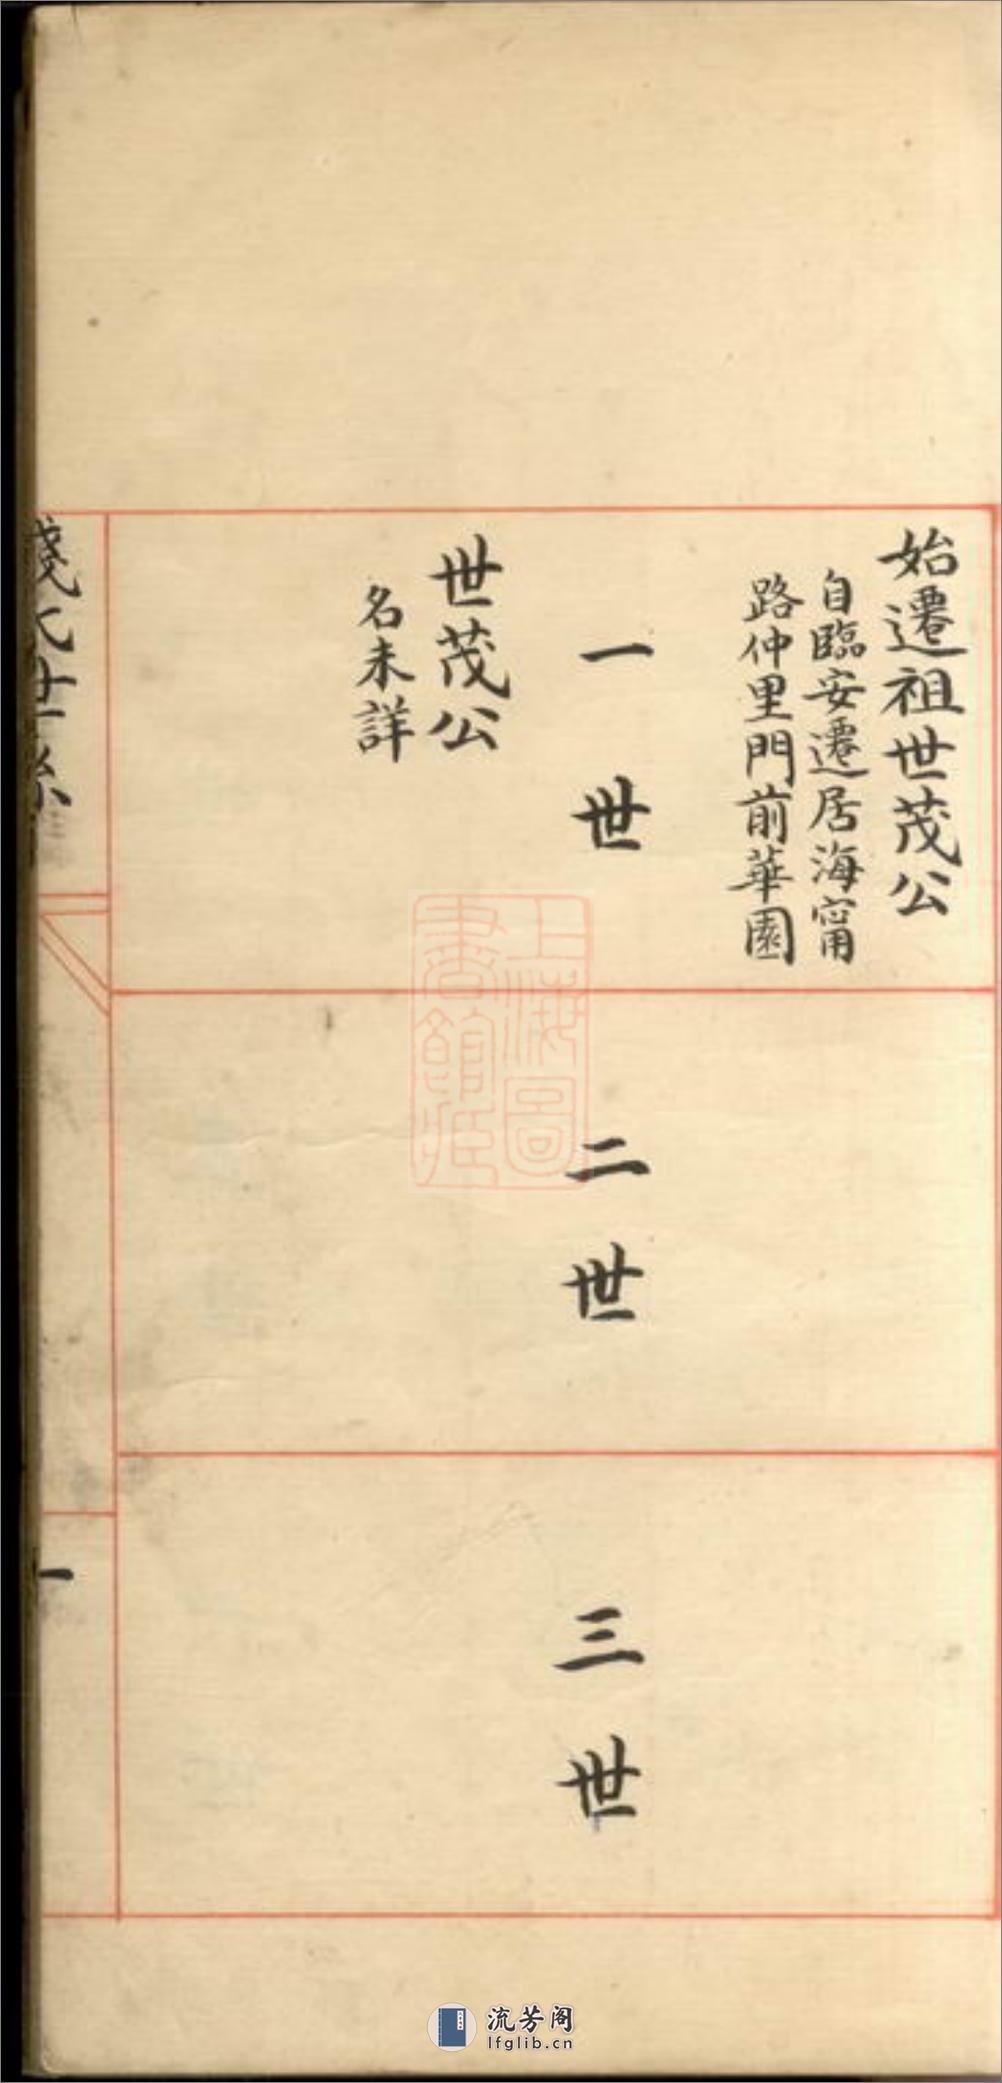 始遷祖世茂公
自臨安遷居海甯
路仲里門前華園
一世
世茂公
名未詳
二世
三世
錢氏世系
一
上海圖
書館藏
流芳阁
lfglib.cn